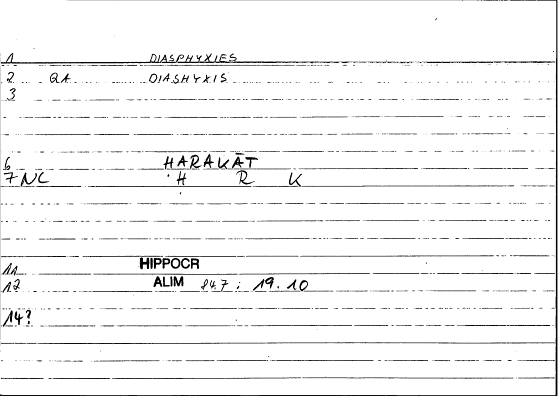 1 DIASPHYXIES
2 QA DIASHYXIS
3
6 HARAKĀT
7 NC Ḥ R K
11 HIPPOCR
12 ALIM 247 ; 19.10
14?